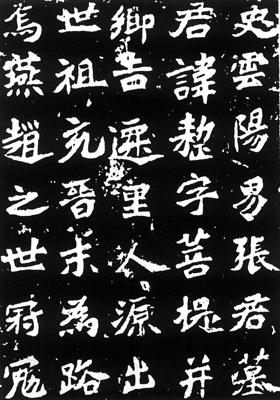 史雲陽男張君墓
君諱整字菩提并
鄉吉遷里人源出
世祖充晉末為路
焉燕趙之世冠冕